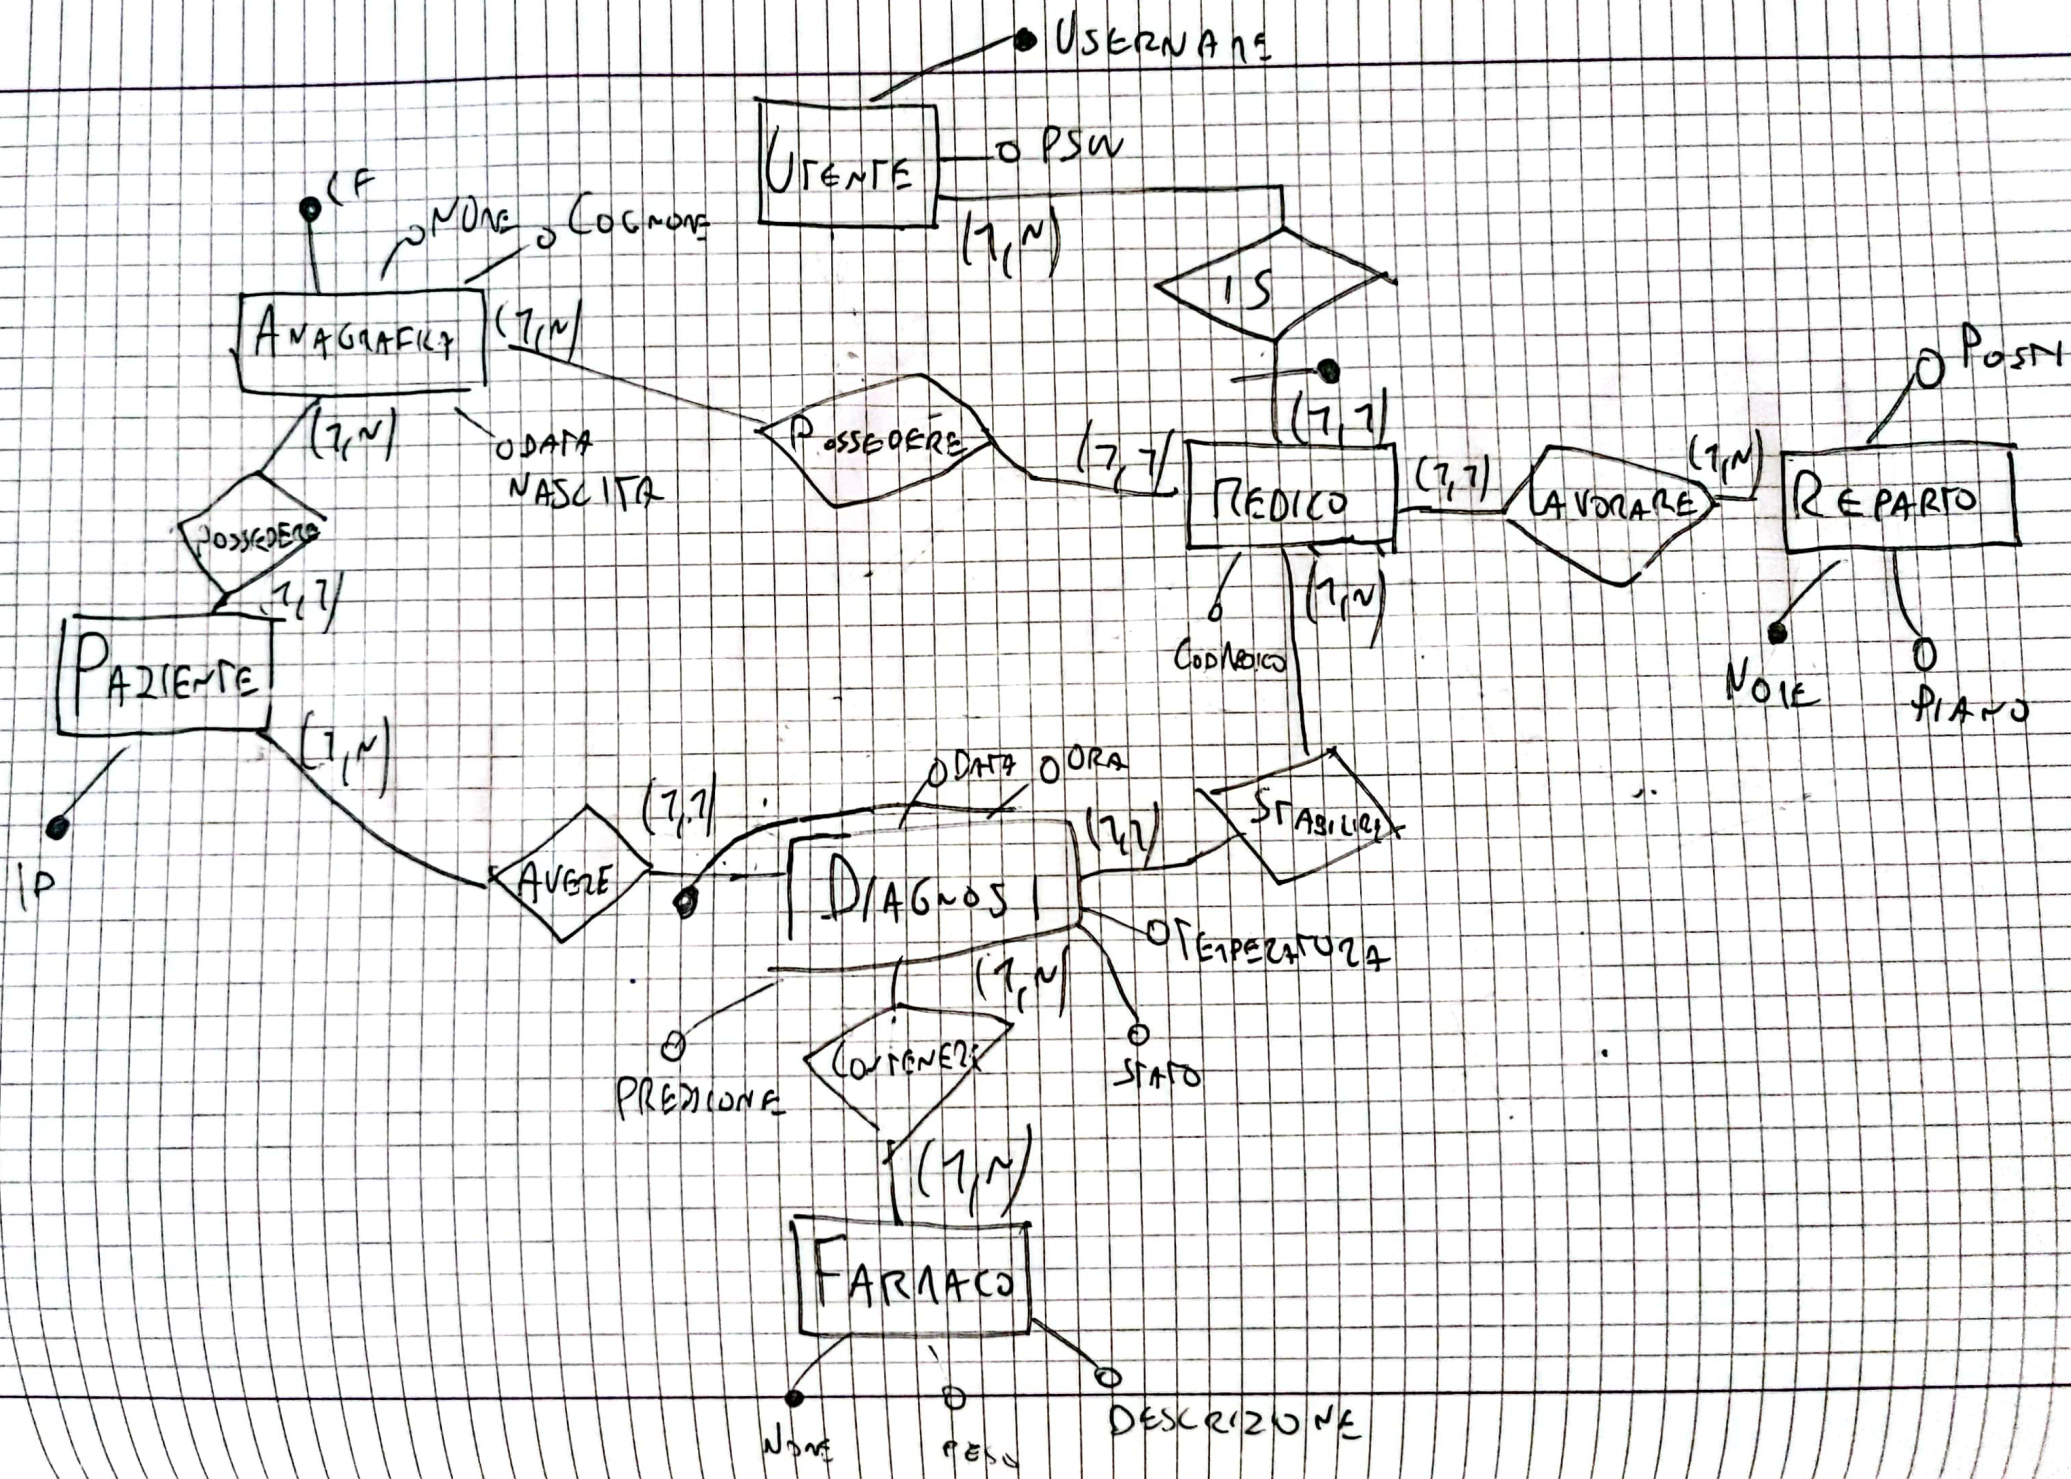 USERNAME
UTENTE
PSW
(1,N)
CF
NOME
COGNOME
IS
ANAGRAFICA
(1,N)
POSTI
(1,N)
DATA
NASCITA
POSSEDERE
(1,1)
(1,1)
MEDICO
(1,1)
LAVORARE
(1,N)
REPARTO
POSSEDERE
(1,1)
(1,N)
CODMEDICO
NOME
PIANO
PAZIENTE
(1,N)
ID
AVERE
(1,1)
DATA
ORA
DIAGNOSI
(1,1)
STABILIRE
TEMPERATURA
(1,N)
PREDIZIONE
CONTENERE
STATO
(1,N)
FARMACO
NOME
PESO
DESCRIZIONE